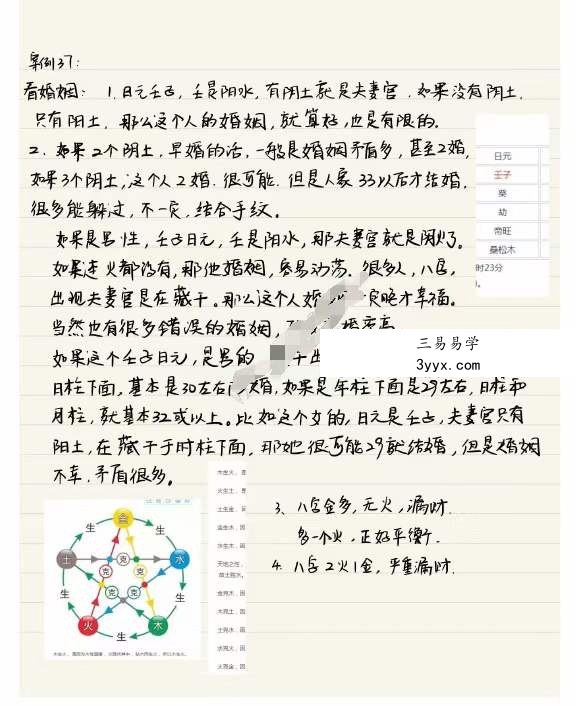 案例37：
看婚姻： 1.日元壬子，壬是阳水，有阴土就是夫妻宫，如果没有阴土，
只有阳土，那么这个人的婚姻，就算好，也是有限的。
2、如果2个阴土，早婚的话，一般是婚姻矛盾多，甚至2婚，
如果3个阴土，这个人2婚，很可能，但是人家33以后才结婚，
很多能躲过，不一定，结合手纹。
如果是男性，壬子日元，壬是阳水，那夫妻宫就是阴火。
如果连火都没有，那他婚姻，容易动荡，很多人，八字，
出现夫妻宫是在藏干。那么这个人婚 晚才幸福。
当然也有很多错误的婚姻，
如果这个壬子日元，是男的
日柱下面，基本是30左右 婚，如果是年柱下面是29左右，日柱和
月柱，就基本32或以上。比如这个女的，日元是壬子，夫妻宫只有
阳土，在藏干于时柱下面，那她很可能29就结婚，但是婚姻
不幸，矛盾很多。
3、八字金多，无火，漏财，
多一个火，正好平衡。
4、八字2火1金，严重漏财。
日元
壬子
癸
劫
帝旺
桑柘木
时23分
三易易学
3yyx.com
金
水
木
火
土
生
生
生
生
生
克
克
克
克
克
木生火，
火生土，
土生金，因
金生水，因
水生木，因
天地之性，
故土胜水。
金克木，因
木克土，因
土克水，因
水克火，因
火克金，因